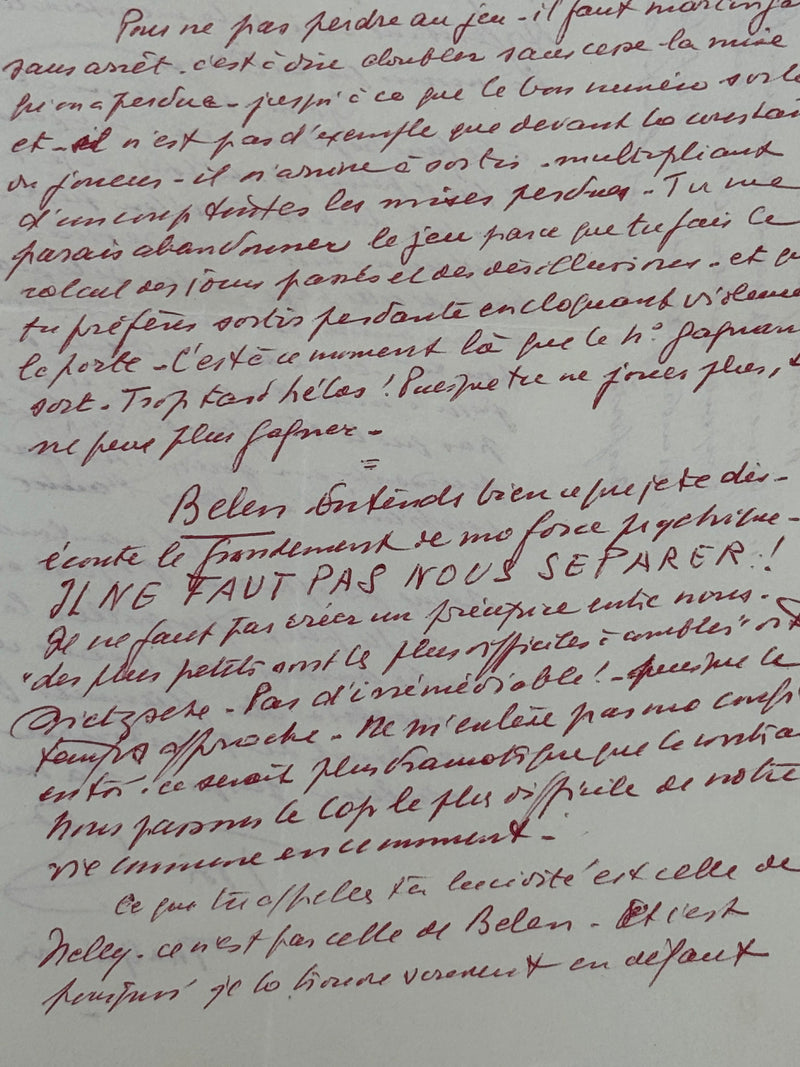 Pour ne pas perdre au jeu - il faut martinga
sans arrêt - c'est à dire doubler sans cesse la mise
qu'on a perdue - jusqu'à ce que le bon numéro sorte
et - il n'est pas d'exemple que devant la constan
du joueur - il n'arrive à sortir - multipliant
d'un coup toutes les mises perdues - Tu me
parais abandonner le jeu parce que tu fais le
calcul des jours passés et des désillusions - et qu
tu préfères sortir perdante en claquant violemme
la porte - C'est à ce moment là que le n° gagnan
sort - Trop tard hélas ! Puisque tu ne joues plus, t
ne peux plus gagner -
Belen Entends bien ce que je te dis -
écoute le grondement de ma force psychique -
IL NE FAUT PAS NOUS SEPARER !
Il ne faut pas créer un précipice entre nous -
"les plus petits sont les plus difficiles à combler" dit
Nietzsche - Pas d'irrémédiable ! - puisque le
temps approche - Ne m'enlève pas ma confi
en toi - ce serait plus dramatique que le contra
Nous passons le Cap le plus difficile de notre
vie commune en ce moment -
Ce que tu appelles ta lucidité est celle de
Nelly - ce n'est pas celle de Belen - Et c'est
pourquoi je la trouve vraiment en défaut